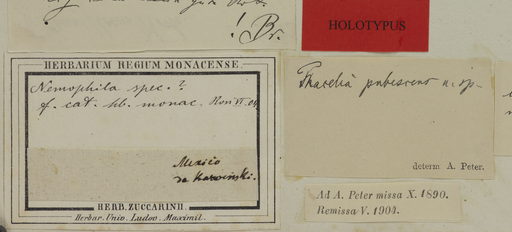 ! Br.
HOLOTYPUS
HERBARIUM REGIUM MONACENSE.
Nemophila spec.?
cf. cat. hb. monac. Non VI. 04
Mexico
de Karwinski.
HERB. ZUCCARINII.
Herbar. Univ. Ludov. Maximil.
Phacelia pubescens n. sp.
determ A. Peter.
Ad A. Peter missa X. 1890.
Remissa V. 1904.